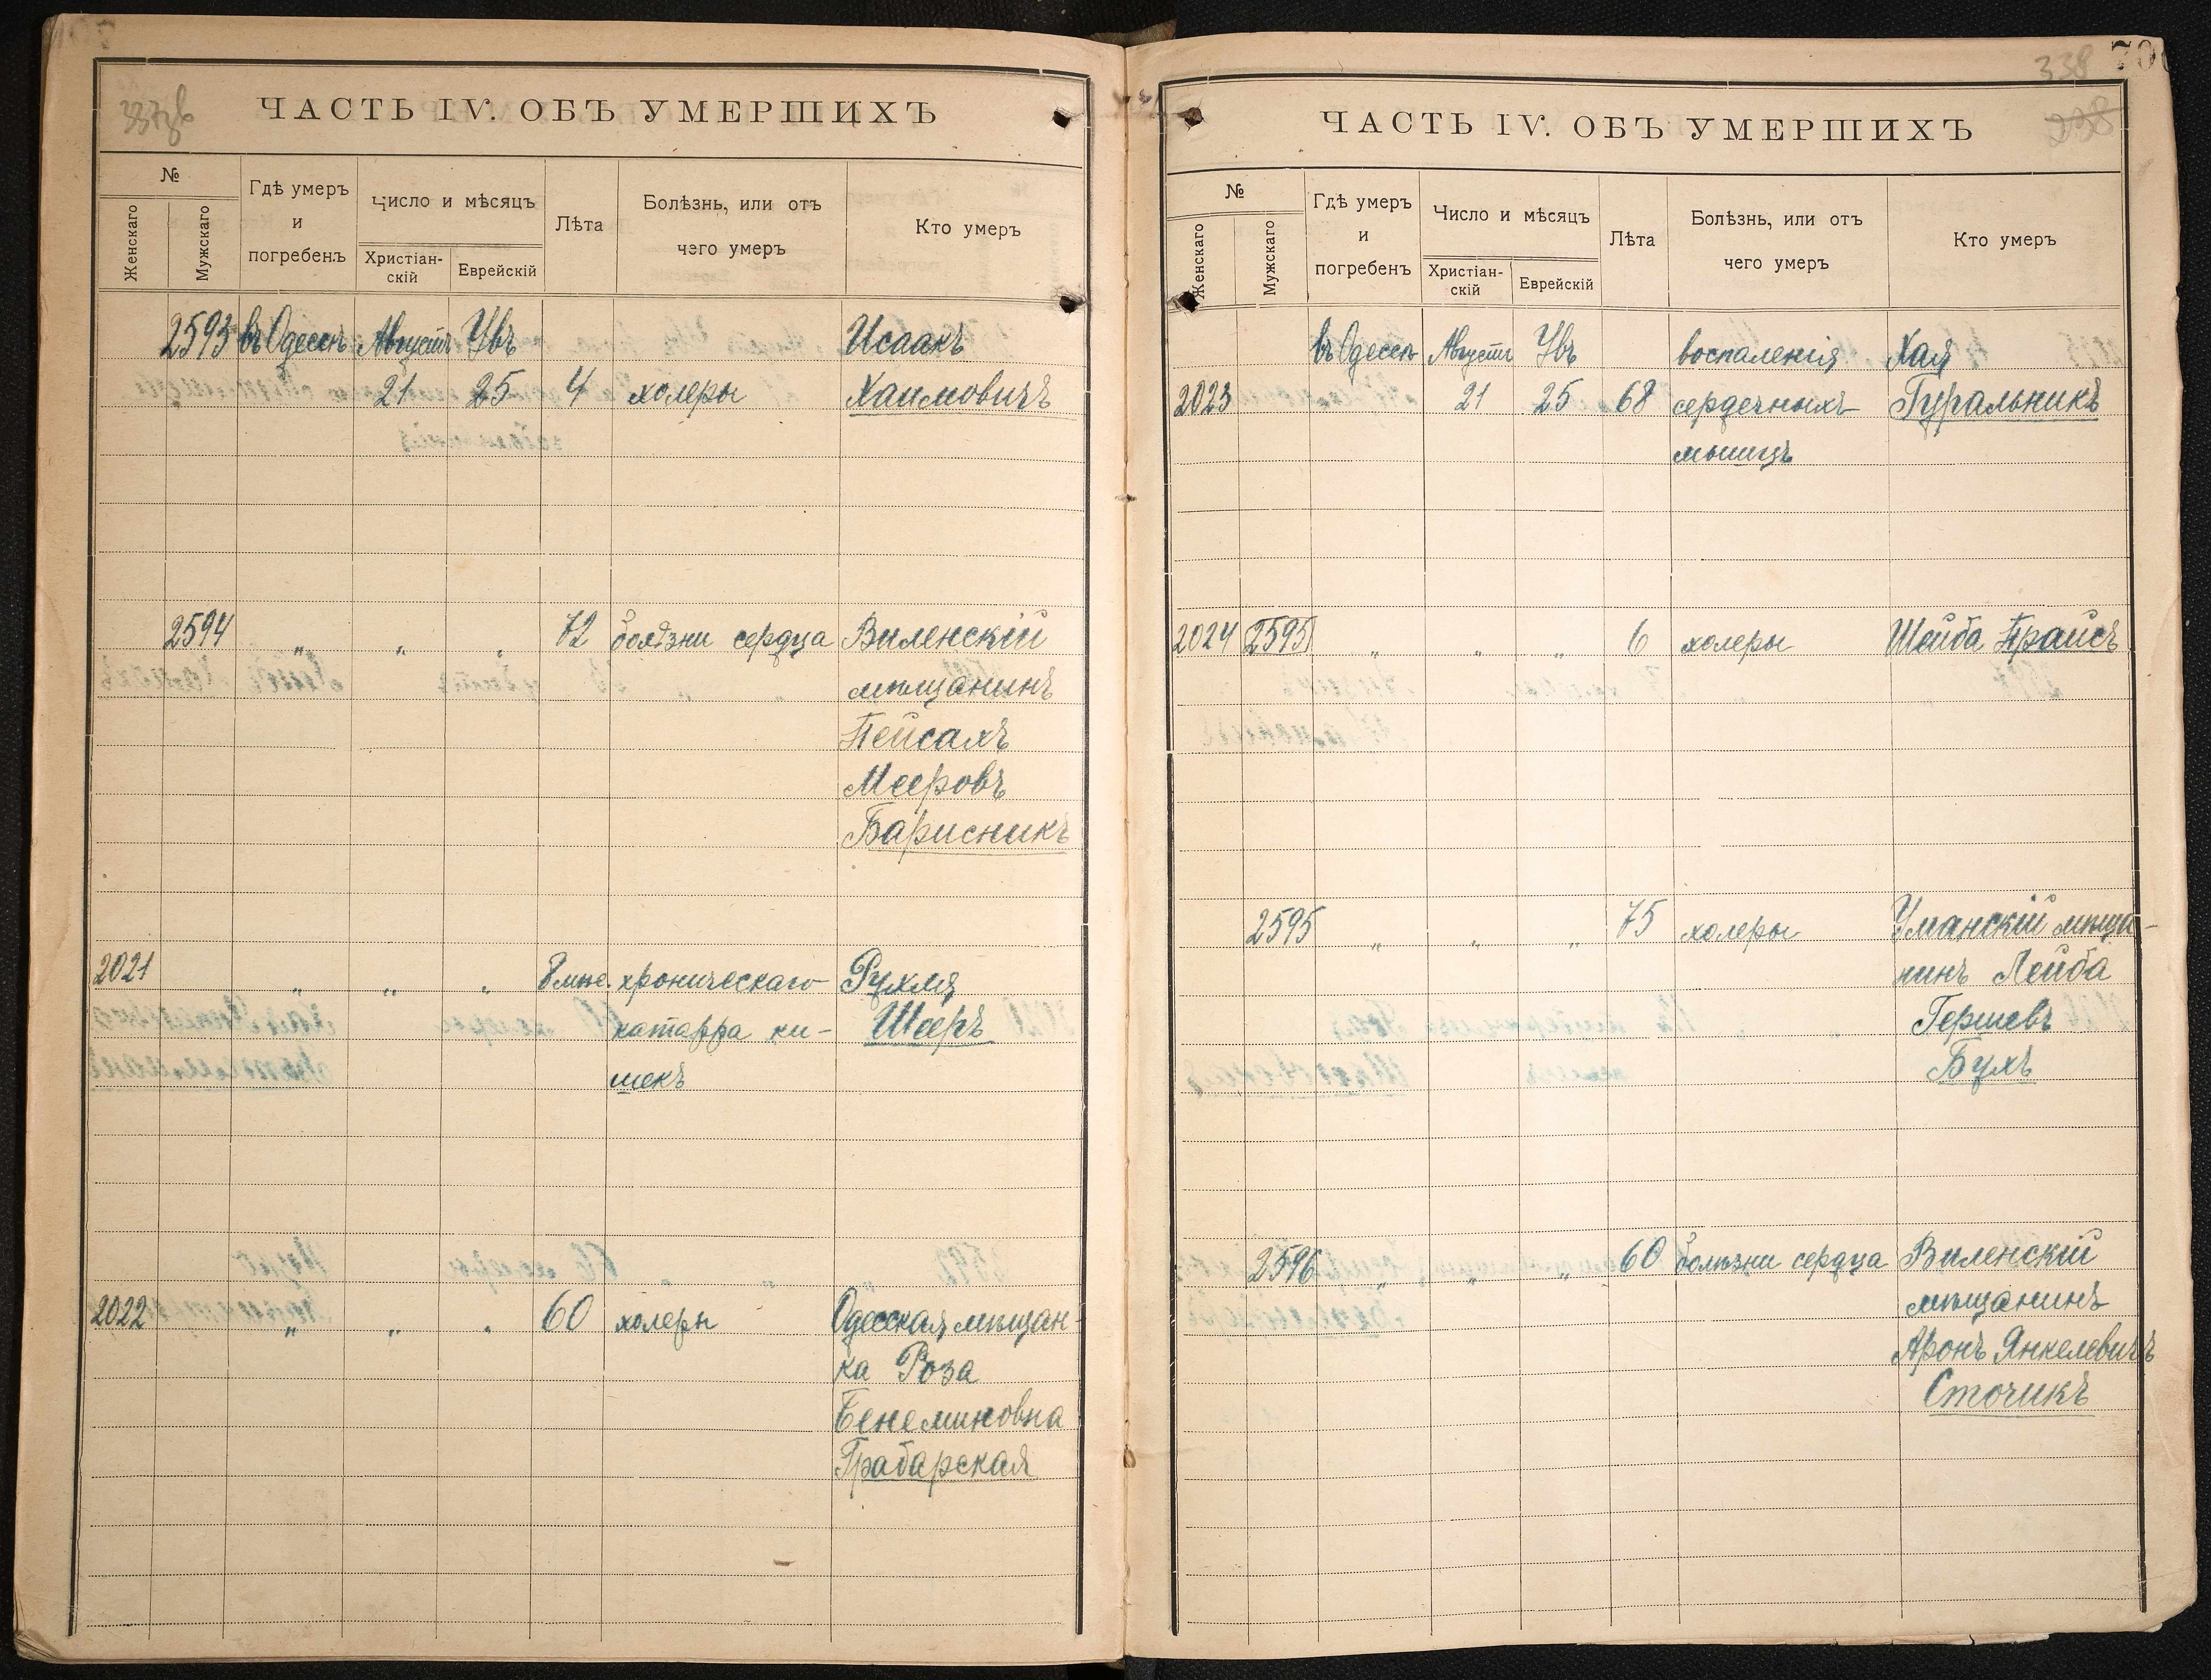 337 об
ЧАСТЬ IV. ОБЪ УМЕРШИХЪ
№
Женскаго
Мужскаго
Гдѣ умеръ
и
погребенъ
Число и мѣсяцъ
Христіан-
скій
Еврейскій
Лѣта
Болѣзнь, или отъ
чего умеръ
Кто умеръ
2593 въ Одессѣ Августъ Увъ Исаакъ
21 25 4 холеры Хаимовичъ
2594 " " " 72 болѣзни сердца Виленскій
мѣщанинъ
Пейсахъ
Мееровъ
Барисникъ
2021 " " " 8 мѣс. хроническаго Рухля
катарра ки- Шееръ
шекъ
2022 " " " 60 холеры Одесская мѣщан-
ка Роза
Бенеминовна
Грабарская
338
ЧАСТЬ IV. ОБЪ УМЕРШИХЪ
238
№
Женскаго
Мужскаго
Гдѣ умеръ
и
погребенъ
Число и мѣсяцъ
Христіан-
скій
Еврейскій
Лѣта
Болѣзнь, или отъ
чего умеръ
Кто умеръ
въ Одессѣ Августъ Увъ воспаленія Хая
2023 21 25 68 сердечныхъ Гуральникъ
мышцъ
2024 2595 " " " 6 холеры Шейба Прайсъ
2595 " " " 75 холеры Уманскій мѣща-
нинъ Лейба
Гершевъ
Бухъ
2596 " " " 60 болѣзни сердца Виленскій
мѣщанинъ
Аронъ Янкелевичъ
Сточикъ